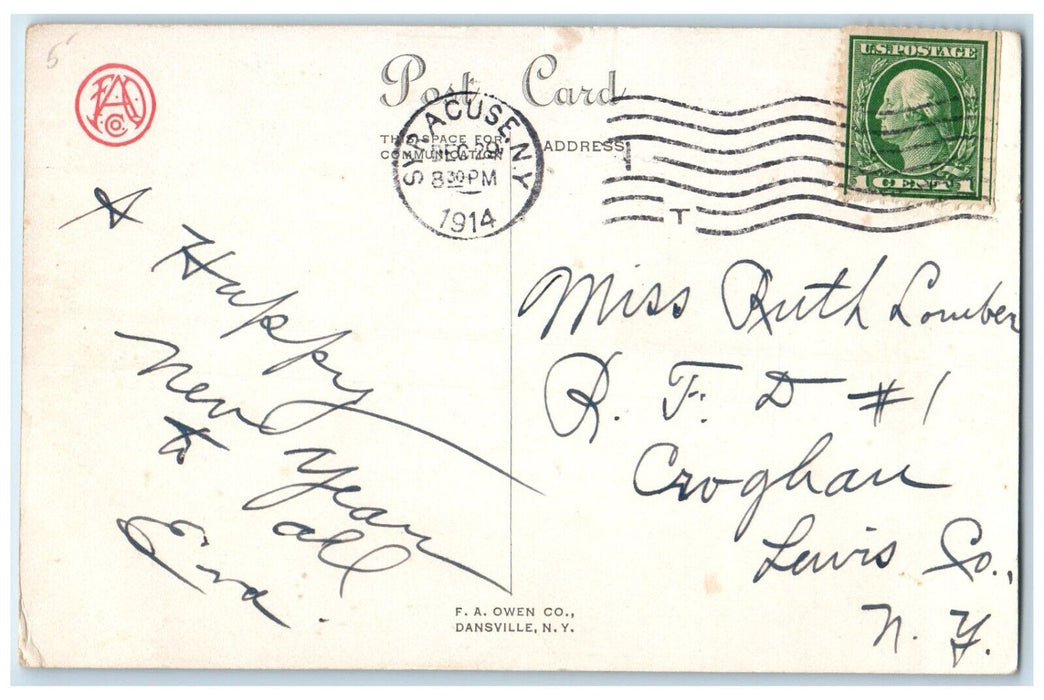 5
FAO
Co.
Post Card
THIS SPACE FOR
COMMUNICATION
ADDRESS
SYRACUSE, N.Y.
DEC 29
8 30 PM
1914
T
U.S. POSTAGE
1 CENT 1
A
Happy
New Year
to all
Eva.
Miss Ruth Lomber
R. F. D #1
Croghan
Lewis Co.,
N. Y.
F. A. OWEN CO.,
DANSVILLE, N. Y.